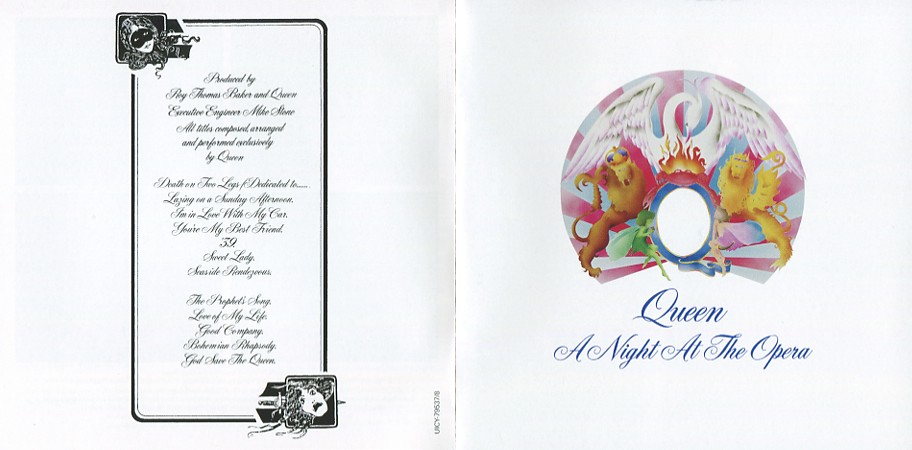 Produced by
Roy Thomas Baker and Queen
Executive Engineer Mike Stone
All titles composed, arranged
and performed exclusively
by Queen
Death on Two Legs (Dedicated to......
Lazing on a Sunday Afternoon.
I'm in Love With My Car.
You're My Best Friend.
'39.
Sweet Lady.
Seaside Rendezvous.
The Prophet's Song.
Love of My Life.
Good Company.
Bohemian Rhapsody.
God Save The Queen.
UICY-79537/8
Queen
A Night At The Opera